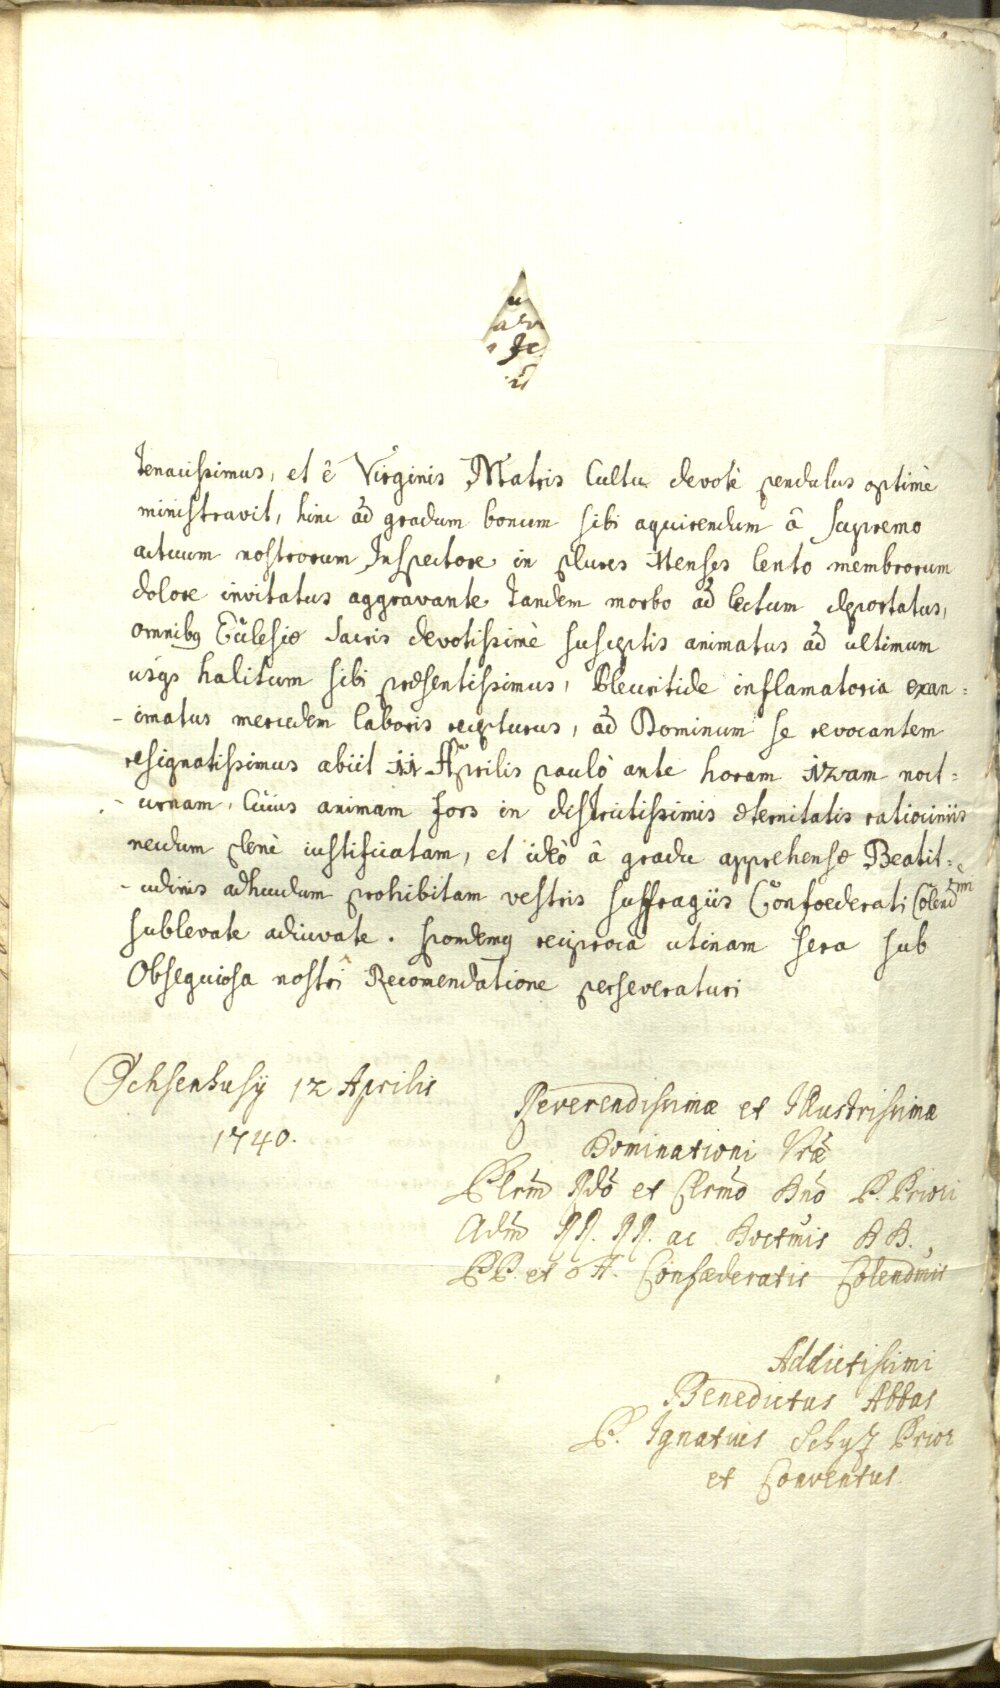 tenacissimus, et è Virginis Matris Cultu devotè pendulus optimè
ministravit, hinc ad gradum bonum sibi aquirendum â supremo
actuum nostrorum Inspectore in plures Menses lento membrorum
dolore invitatus aggravante tandem morbo ad lectum deportatus,
omnibq Ecclesiæ sacris devotissimè susceptis animatus ad ultimum
usqs halitum sibi præsentissimus, Pleuritide inflamatoria exan=
-imatus mercedem laboris recepturus, ad Dominum se revocantem
resignatissimus abiit 11 Aprilis paulò ante horam 12am noct=
-urnam, Cuius animam fors in destrictissimis æternitatis ratiociniis
necdum plenè iustificatam, et ideò â gradu apprehensæ Beatit=
-udinis adhucdum prohibitam vestris suffragiis Confoederati Colendmi
sublevate adiuvate. reciproca utinam sera sub
Obsequiosa nostri Recomendatione perseveraturi
Ochsenhusij 12 Aprilis
1740.
Reverendissimæ et Illustrissimæ
Dominationi Vræ
Plrm Rdo et Clrmo Dno P. Priori
Adm RR. RR. ac Doctmis DD.
PP. et FF. Confæderatis Colendmis
Addictissimi
Benedictus Abbas
P. Ignatius Schyz Prior
et Conventus